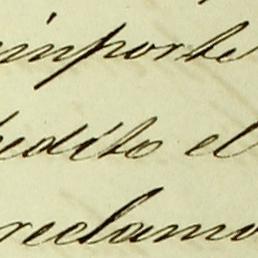 importe
pedito el
reclamo